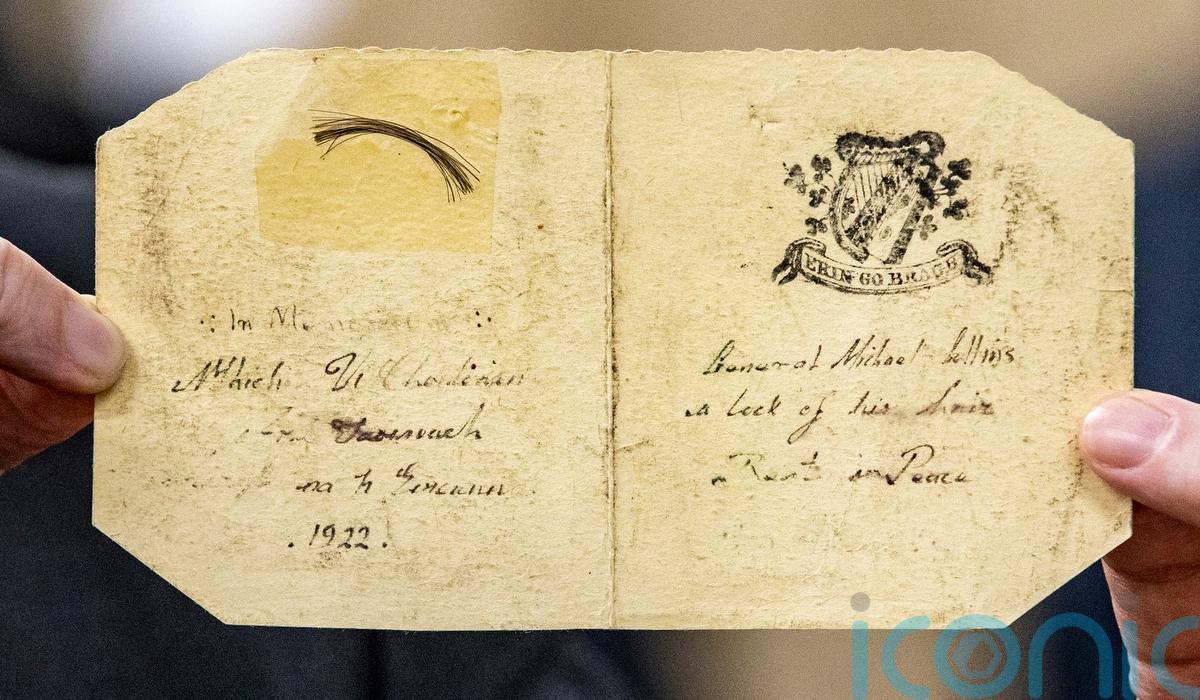 ∴ In Memoriam ∵
Mhich Ui Choileain
na h Éireann
.1922.
ERIN GO BRAGH
General Michael Collins
a lock of his hair
Rest in Peace
iconic